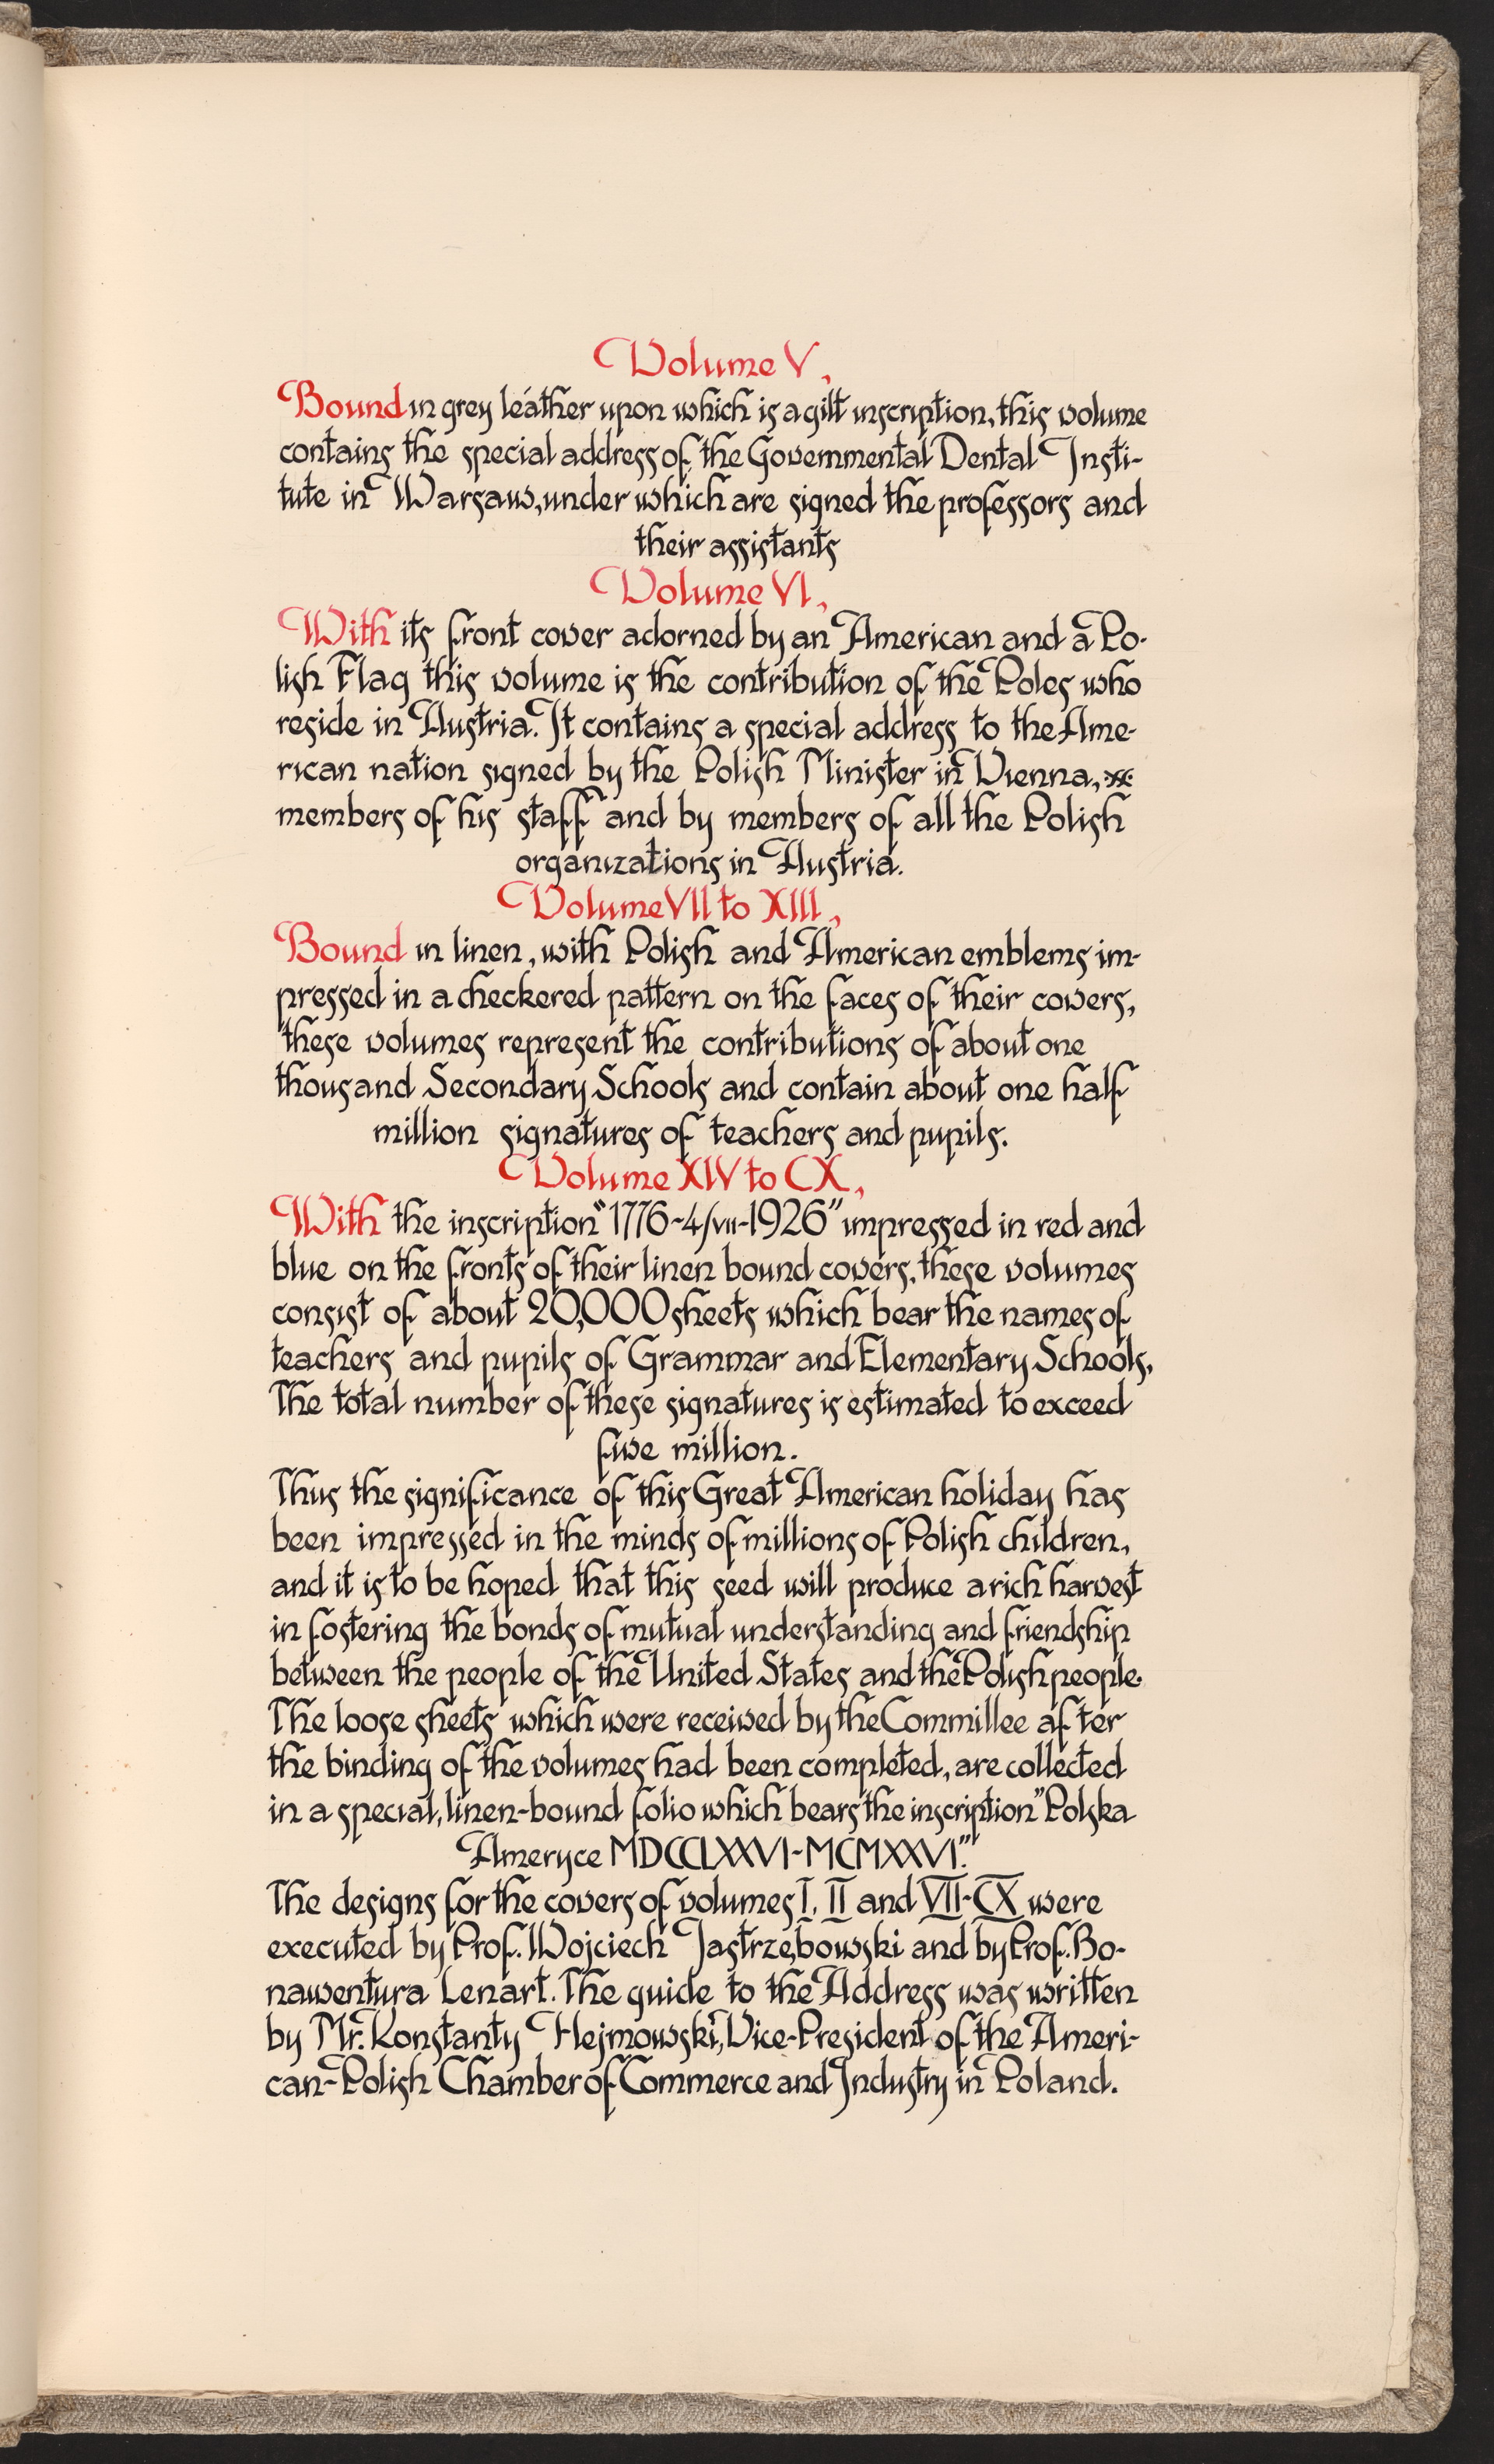 Volume V,
Bound in grey leather upon which is a gilt inscription, this volume
contains the special address of the Governmental Dental Insti-
tute in Warsaw, under which are signed the professors and
their assistants
Volume VI,
With its front cover adorned by an American and a Po-
lish Flag this volume is the contribution of the Poles who
reside in Austria. It contains a special address to the Ame-
rican nation signed by the Polish Minister in Vienna,
members of his staff and by members of all the Polish
organizations in Austria.
Volume VII to XIII,
Bound in linen, with Polish and American emblems im-
pressed in a checkered pattern on the faces of their covers,
these volumes represent the contributions of about one
thousand Secondary Schools and contain about one half
million signatures of teachers and pupils.
Volume XIV to CX,
With the inscription "1776-4/VII-1926" impressed in red and
blue on the fronts of their linen bound covers, these volumes
consist of about 20,000 sheets which bear the names of
teachers and pupils of Grammar and Elementary Schools,
The total number of these signatures is estimated to exceed
five million.
Thus the significance of this Great American holiday has
been impressed in the minds of millions of Polish children,
and it is to be hoped that this seed will produce a rich harvest
in fostering the bonds of mutual understanding and friendship
between the people of the United States and the Polish people.
The loose sheets which were received by the Committee after
the binding of the volumes had been completed, are collected
in a special, linen-bound folio which bears the inscription "Polska
Ameryce MDCCLXXVI-MCMXXVI."
The designs for the covers of volumes I, II and VII-CX were
executed by Prof. Wojciech Jastrzębowski and by Prof. Bo-
nawentura Lenart. The guide to the Address was written
by Mr. Konstanty Hejmowski, Vice-President of the Ameri-
can-Polish Chamber of Commerce and Industry in Poland.